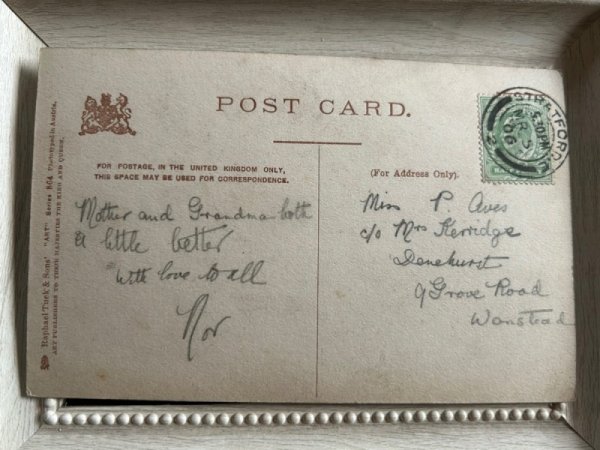 POST CARD.
FOR POSTAGE, IN THE UNITED KINGDOM ONLY,
THIS SPACE MAY BE USED FOR CORRESPONDENCE.
(For Address Only).
Mother and Grandma both
a little better
With love to all
Nor
Miss P Aves
c/o Mrs Kerridge
Denehurst
9 Grove Road
Wanstead
STRATFORD
5.30PM
MR 5
06
Raphael Tuck & Sons' "ART" Series 804 Phototyped in Austria.
ART PUBLISHERS TO THEIR MAJESTIES THE KING AND QUEEN.